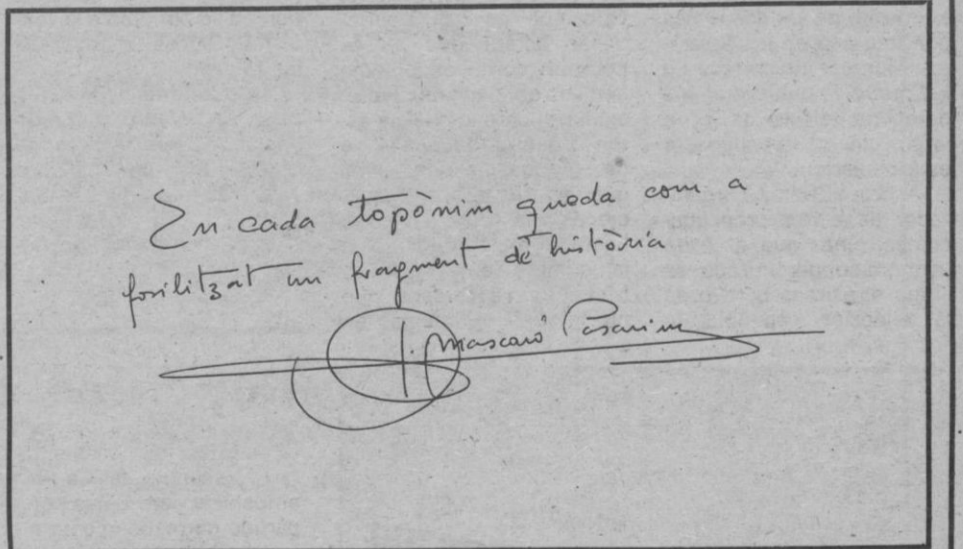 En cada topònim queda com a
fosilitzat un fragment de història
J. Mascaró Pasarius